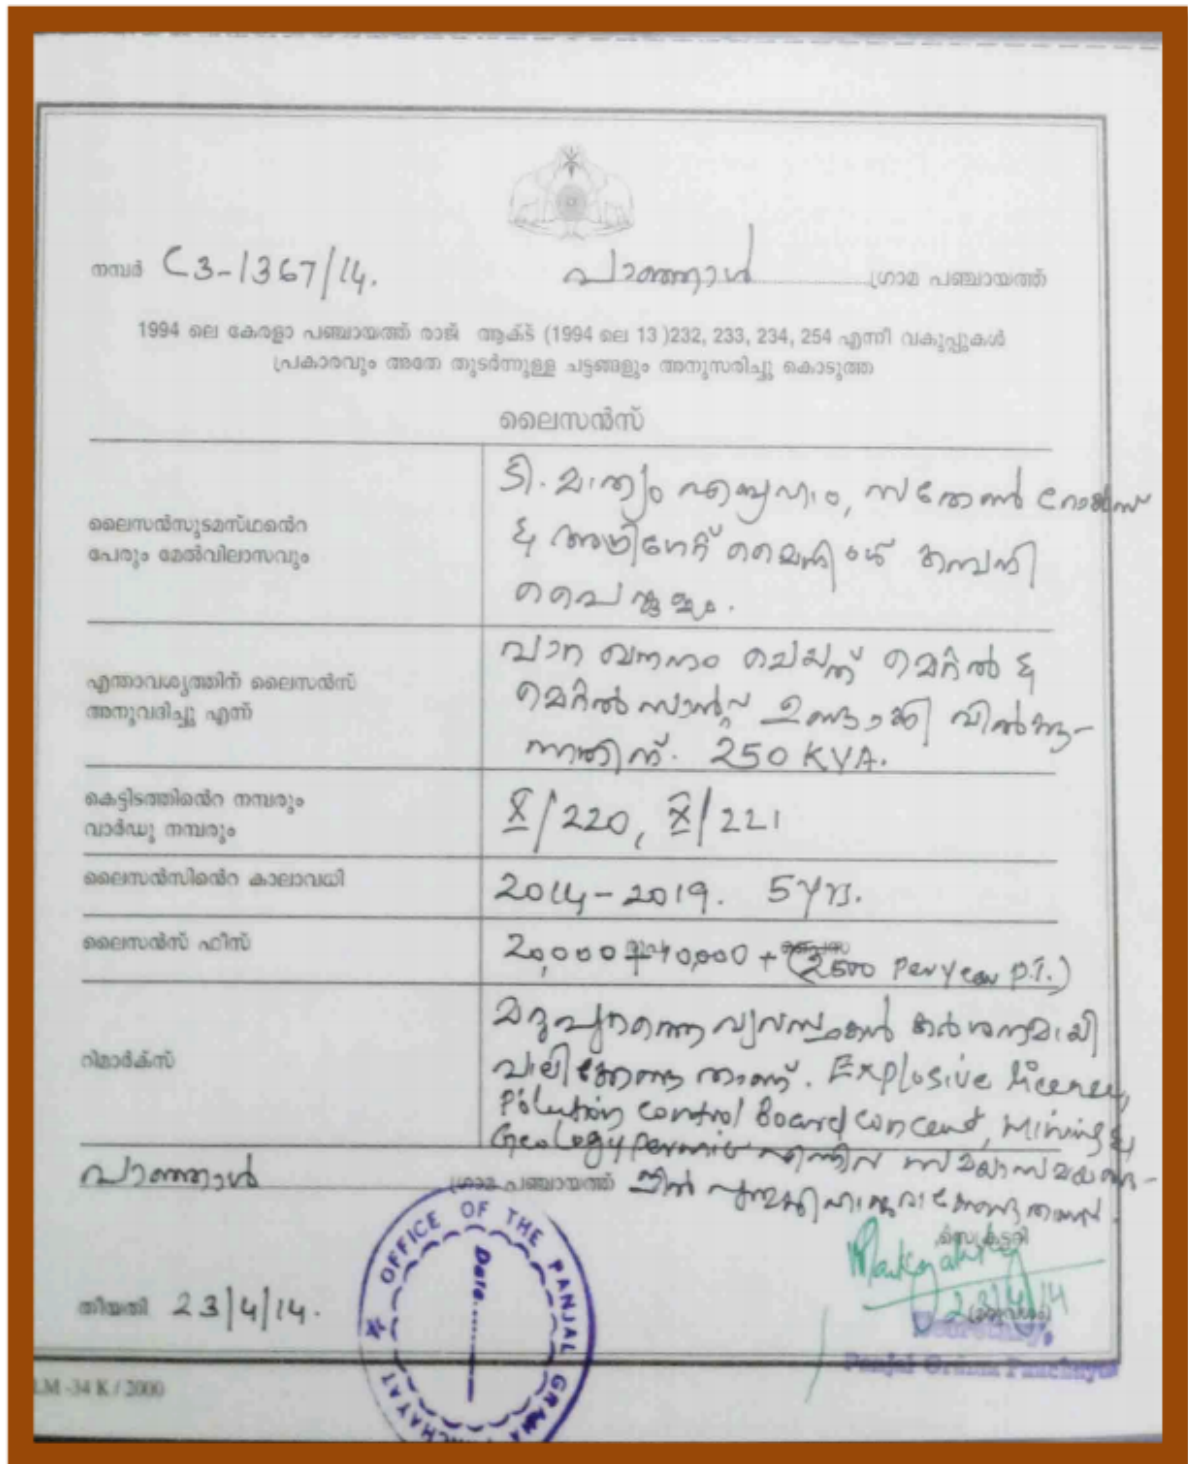 നമ്പർ C3-1367/14.
പാഞ്ഞാൾ ഗ്രാമ പഞ്ചായത്ത്
1994 ലെ കേരളാ പഞ്ചായത്ത് രാജ് ആക്ട് (1994 ലെ 13 )232, 233, 234, 254 എന്നീ വകുപ്പുകൾ
പ്രകാരവും അതേ തുടർന്നുള്ള ചട്ടങ്ങളും അനുസരിച്ചു കൊടുത്ത
ലൈസൻസ്
ലൈസൻസുടമസ്ഥന്റെ
പേരും മേൽവിലാസവും
ടി. മാത്യം എബ്രഹാം,
& അഗ്രിഗേറ്റ് മൈനിംഗ് കമ്പനി
പൈങ്കുളം.
എന്താവശ്യത്തിന് ലൈസൻസ്
അനുവദിച്ചു എന്ന്
പാറ ഖനനം ചെയ്ത് മെറ്റൽ &
മെറ്റൽ സാന്റ് ഉണ്ടാക്കി വിൽക്കു-
ന്നതിന്. 250 KVA.
കെട്ടിടത്തിന്റെ നമ്പരും
വാർഡു നമ്പരും
X/220, X/221
ലൈസൻസിന്റെ കാലാവധി
2014-2019. 5 yrs.
ലൈസൻസ് ഫീസ്
20,000 + 40,000 + (2500 Per year P.T.)
റിമാർക്സ്
മറുപുറത്തെ വ്യവസ്ഥകൾ കർശനമായി
പാലിക്കേണ്ടതാണ്. Explosive licence,
Polution control Board concent, Mining &
Geology permit എന്നിവ സമയാസമയങ്ങ-
ളിൽ പുതുക്കി
പാഞ്ഞാൾ ഗ്രാമ പഞ്ചായത്ത്
സെക്രട്ടറി
തീയതി 23/4/14.
23/4/14
(മുദ്ര)
OFFICE OF THE PANJAL GRAMA PANCHAYAT
Date..........
Secretary,
Panjal Grama Panchayat
LM -34 K / 2000